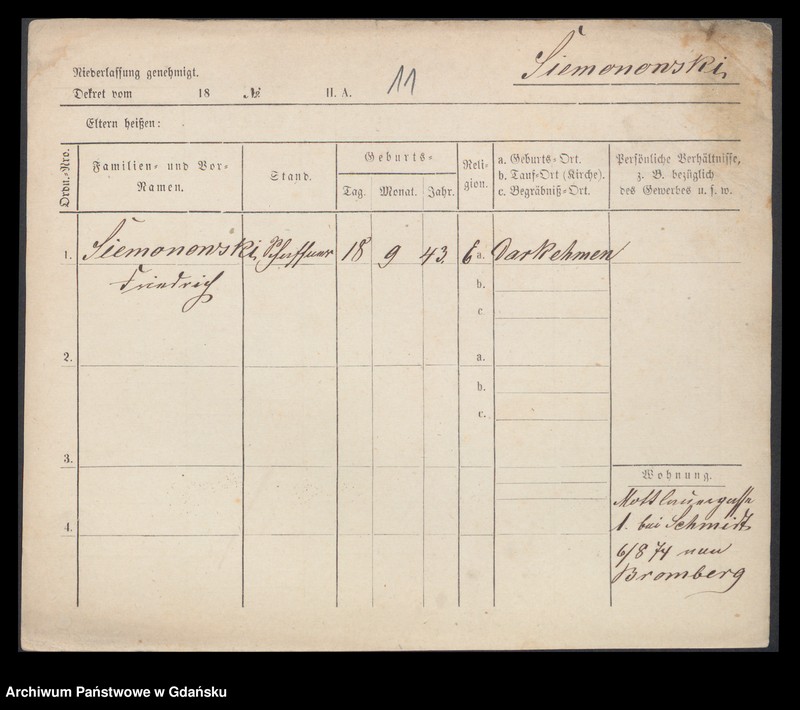 Siemonowski
Niederlassung genehmigt.
Dekret vom 18 № II. A. 11
Eltern heißen:
Ordn.-Nro.
Familien- und Vor-
Namen.
Stand.
Geburts-
Tag. Monat. Jahr.
Reli-
gion.
a. Geburts-Ort.
b. Tauf-Ort (Kirche).
c. Begräbniß-Ort.
Persönliche Verhältnisse,
z. B. bezüglich
des Gewerbes u. s. w.
1. Siemonowski Schaffner 18 9 43. E a. Darkehmen
Friedrich
b.
c.
2. a.
b.
c.
3.
4.
Wohnung.
Mottlauergasse
1. bei Schmidt
6/8 74 nach
Bromberg
Archiwum Państwowe w Gdańsku